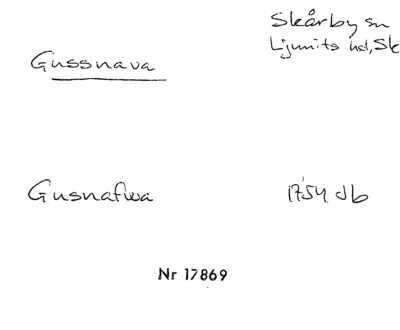 Skårby sn
Ljunits hd, Sk
Gussnava
Gusnafwa
1754 db
Nr 17869